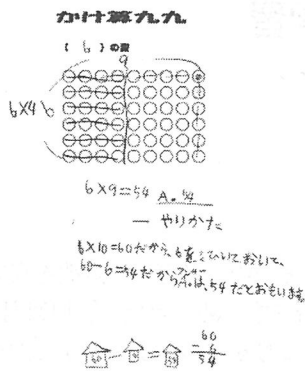 かけ算九九
( 6 )の段
9
6×4 6
6×9=54 A. 54
— やりかた
6×10=60だから、6をひいておいて、
60-6=54だからアンサーは、54だとおもいます
60 - 6 = 54
60
- 6
54